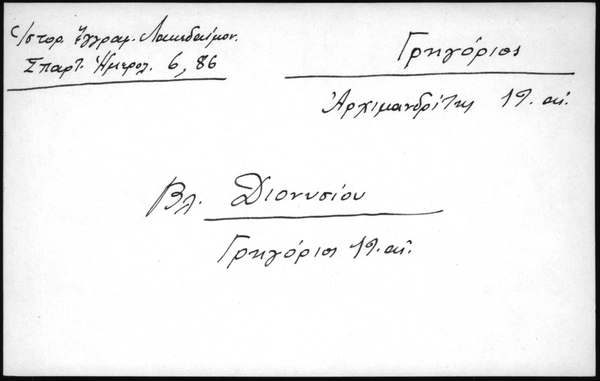 Ἱστορ. Ἔγγραφ. Λακεδαίμον.
Σπαρτ. Ἡμερολ. 6, 86
Γρηγόριος
Ἀρχιμανδρίτης 19. αἰ.
Βλ. Διονυσίου
Γρηγόριος 19. αἰ.